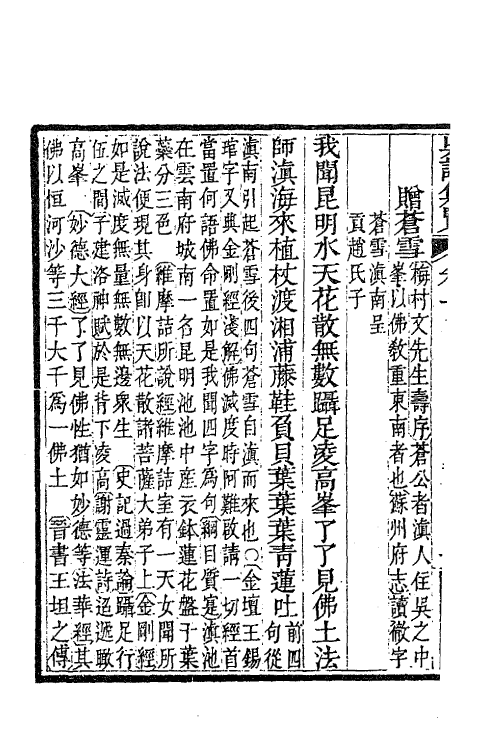 吳詩集覽
贈蒼雪
梅村文先生壽序蒼公者滇人住吳之中
峯以佛敎重東南者也蘇州府志讀徹字
蒼雪滇南呈
貢趙氏子
我聞昆明水天花散無數躡足凌高峯了了見佛土法
師滇海來植杖渡湘浦藤鞋負貝葉葉葉青蓮吐
前四
句從
滇南引起蒼雪後四句蒼雪自滇而來也○金壇王錫
琯字又典金剛經淺解佛滅度時阿難啟請一切經首
當置何語佛命置如是我聞四字爲句綱目質寔滇池
在雲南府城南一名昆明池池中産衣鉢蓮花盤千葉
蘂分三色維摩詰所說經維摩詰室有一天女聞所
說法便現其身卽以天花散諸菩薩大弟子上金剛經
如是滅度無量無數無邊衆生史記過秦論躡足行
伍之間子建洛神賦於是背下凌高謝靈運詩迢遞瞰
高峯妙德大經了了見佛性猶如妙德等法華經其
佛以恒河沙等三千大千爲一佛土晉書王坦之傳